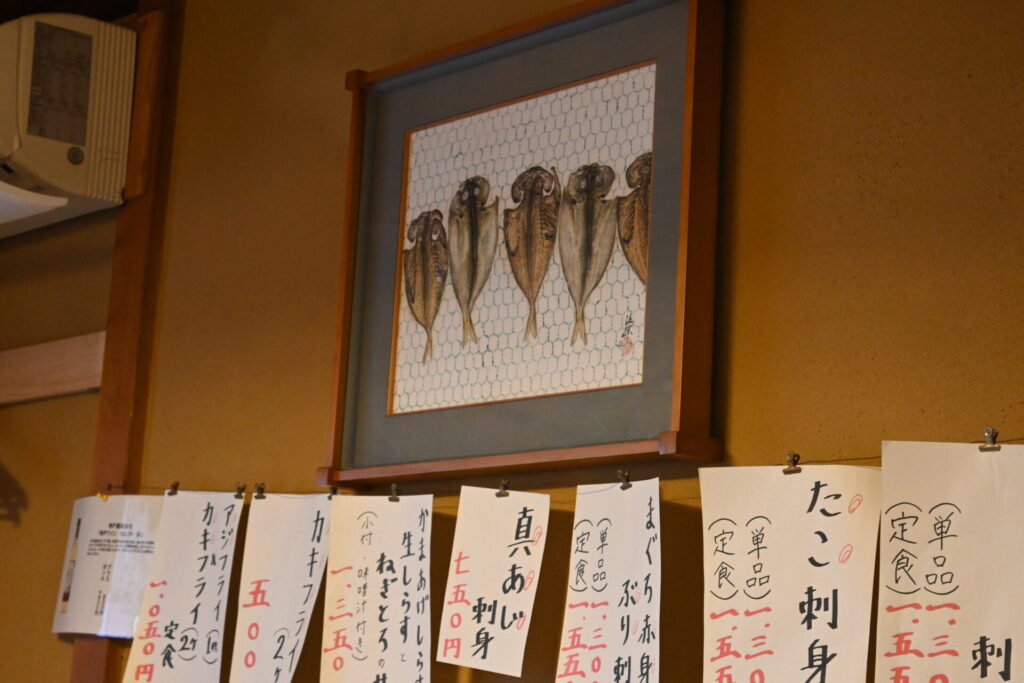 アジフライ 1枚
カキフライ(2ケ)
定食
一、〇五〇
カキフライ(2ケ
五〇〇
かまあげしらす
生しらすと
ねぎとろの
(小付・味噌汁付き)
一、三五〇
真あじ
刺身
七五〇円
まぐろ赤身
ぶり刺
(単品)
一、三〇
(定食)
一、五五
たこ刺身
(単品)
一、三〇
(定食)
一、五五
刺
(単品)
一、三〇
(定食)
一、五五